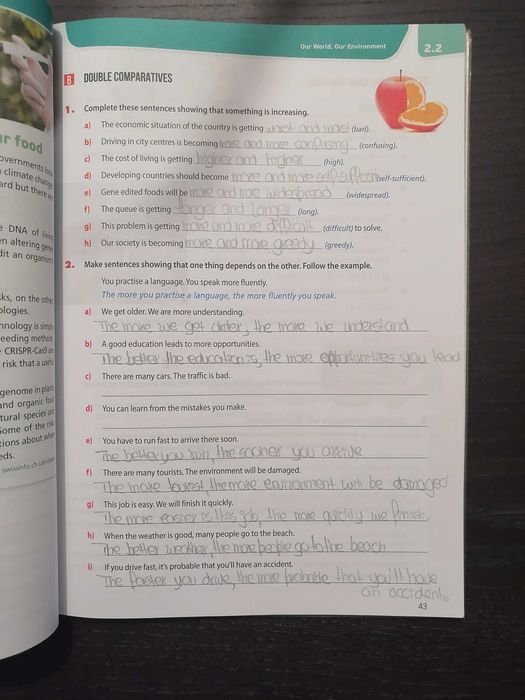 Our World, Our Environment 2.2
r food
overnments loo
climate change
ard but there are
e DNA of living
en altering gene
dit an organism
ks, on the other
ologies.
hnology is simply
eeding methods
CRISPR-Cas9 are
risk that a usefu
genome in plants
and organic food
tural species and
ome of the risk
tions about wheth
eds.
swissinfo.ch (abridged
B DOUBLE COMPARATIVES
1. Complete these sentences showing that something is increasing.
a) The economic situation of the country is getting and (bad).
b) Driving in city centres is becoming more and more confusing (confusing).
c) The cost of living is getting higher and higher (high).
d) Developing countries should become more and more (self-sufficient).
e) Gene edited foods will be more and more widespread (widespread).
f) The queue is getting longer and longer (long).
g) This problem is getting more and more difficult (difficult) to solve.
h) Our society is becoming more and more greedy (greedy).
2. Make sentences showing that one thing depends on the other. Follow the example.
You practise a language. You speak more fluently.
The more you practise a language, the more fluently you speak.
a) We get older. We are more understanding.
The more we get older, the more we understand
b) A good education leads to more opportunities.
The better the education is, the more opportunities you lead
c) There are many cars. The traffic is bad.
d) You can learn from the mistakes you make.
e) You have to run fast to arrive there soon.
The better you run, the sooner you arrive
f) There are many tourists. The environment will be damaged.
The more tourist, the more environment will be damaged
g) This job is easy. We will finish it quickly.
The more easier is this job, the more quickly we finish
h) When the weather is good, many people go to the beach.
The better weather, the more people go to the beach
i) If you drive fast, it's probable that you'll have an accident.
The faster you drive, the more probable that you'll have
an accident.
43